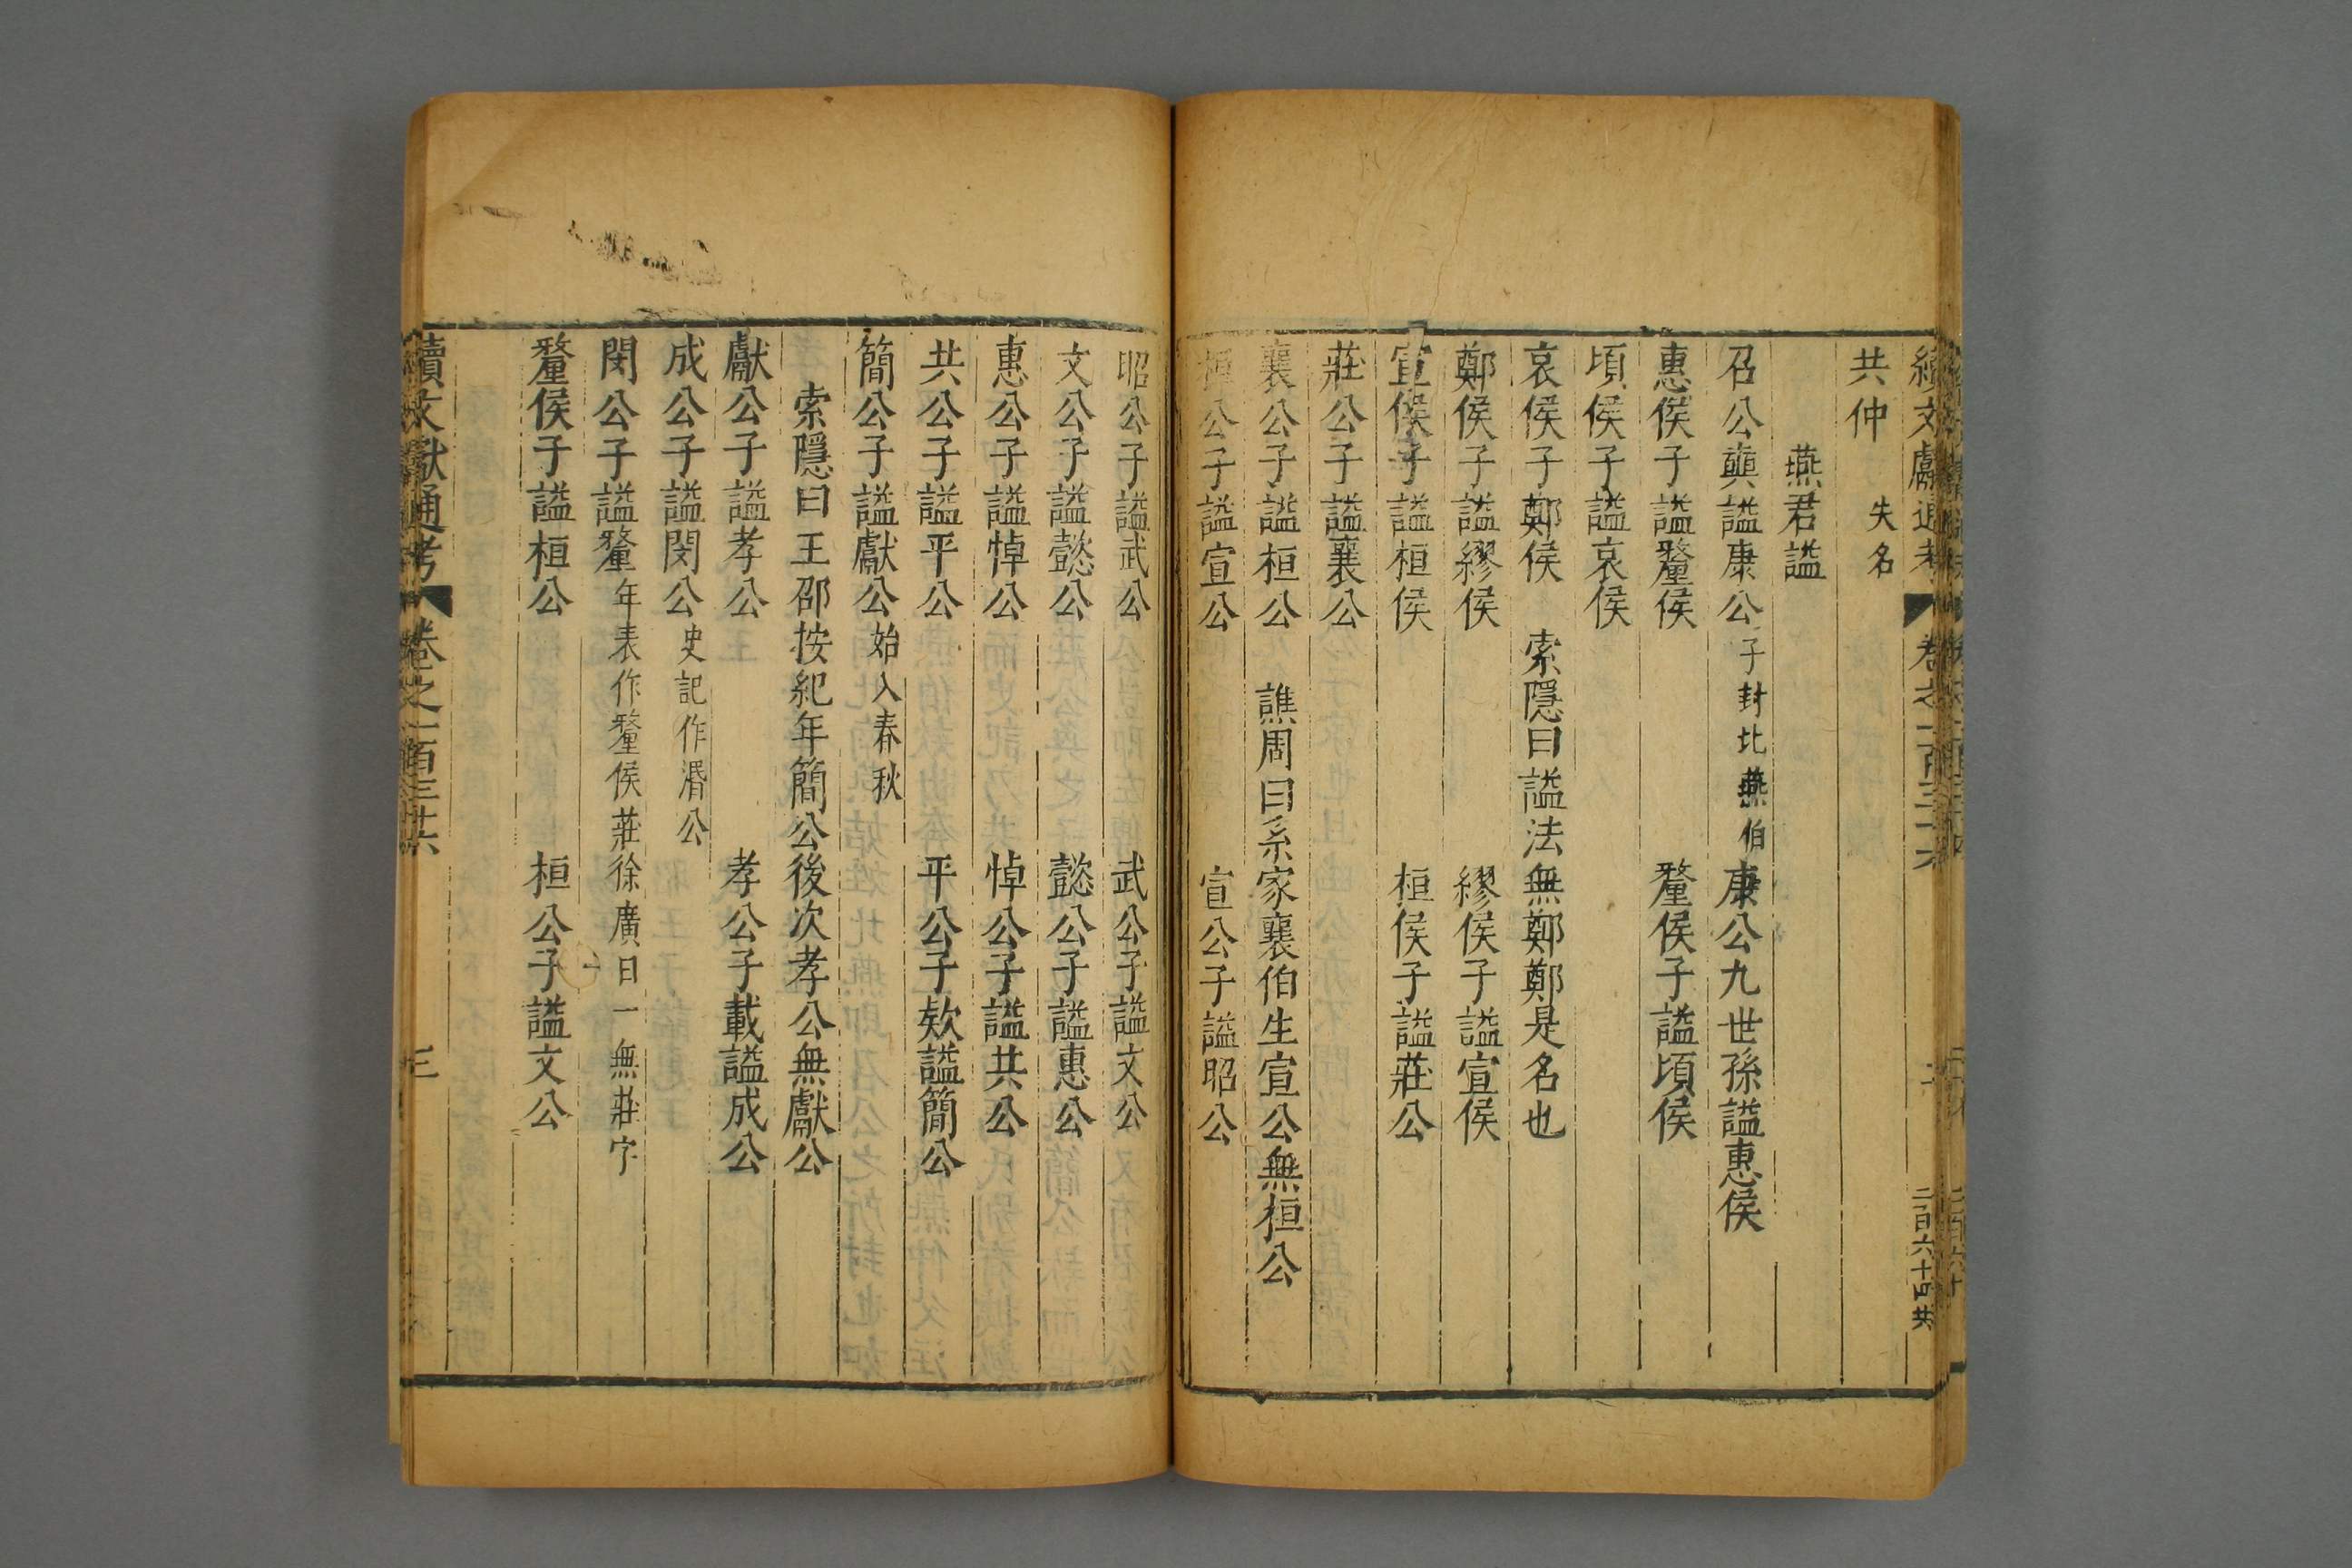 續文獻通考 卷之一百三十六 二百六十四共
共仲 失名
燕君謚
召公奭謚康公 子封北燕伯 康公九世孫謚惠侯
惠侯子謚釐侯 釐侯子謚頃侯
頃侯子謚哀侯
哀侯子鄭侯 索隱曰謚法無鄭鄭是名也
鄭侯子謚繆侯 繆侯子謚宣侯
宣侯子謚桓侯 桓侯子謚莊公
莊公子謚襄公
襄公子謚桓公 譙周曰系家襄伯生宣公無桓公
桓公子謚宣公 宣公子謚昭公
昭公子謚武公 武公子謚文公
文公子謚懿公 懿公子謚惠公
惠公子謚悼公 悼公子謚共公
共公子謚平公 平公子欵謚簡公
簡公子謚獻公 始入春秋
索隱曰王邵按紀年簡公後次孝公無獻公
獻公子謚孝公 孝公子載謚成公
成公子謚閔公 史記作湣公
閔公子謚釐 年表作釐侯莊徐廣曰一無莊字
釐侯子謚桓公 桓公子謚文公
續文獻通考 卷之一百三十六 三